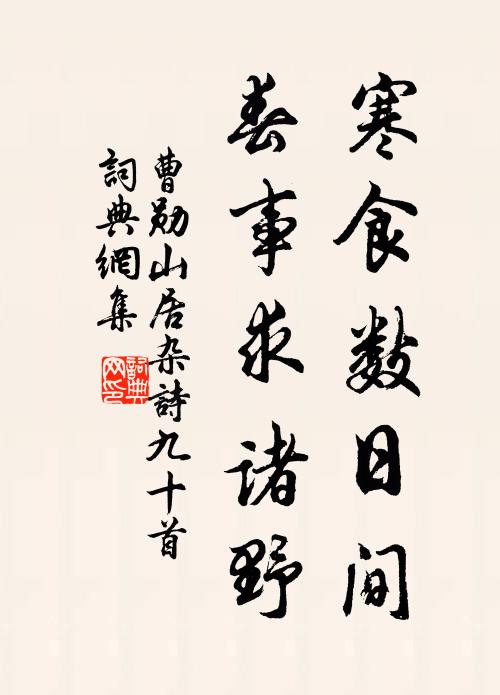 寒食数日间
春事求诸野
曹勋山居杂詩九十首
詞典網集
詞典網印